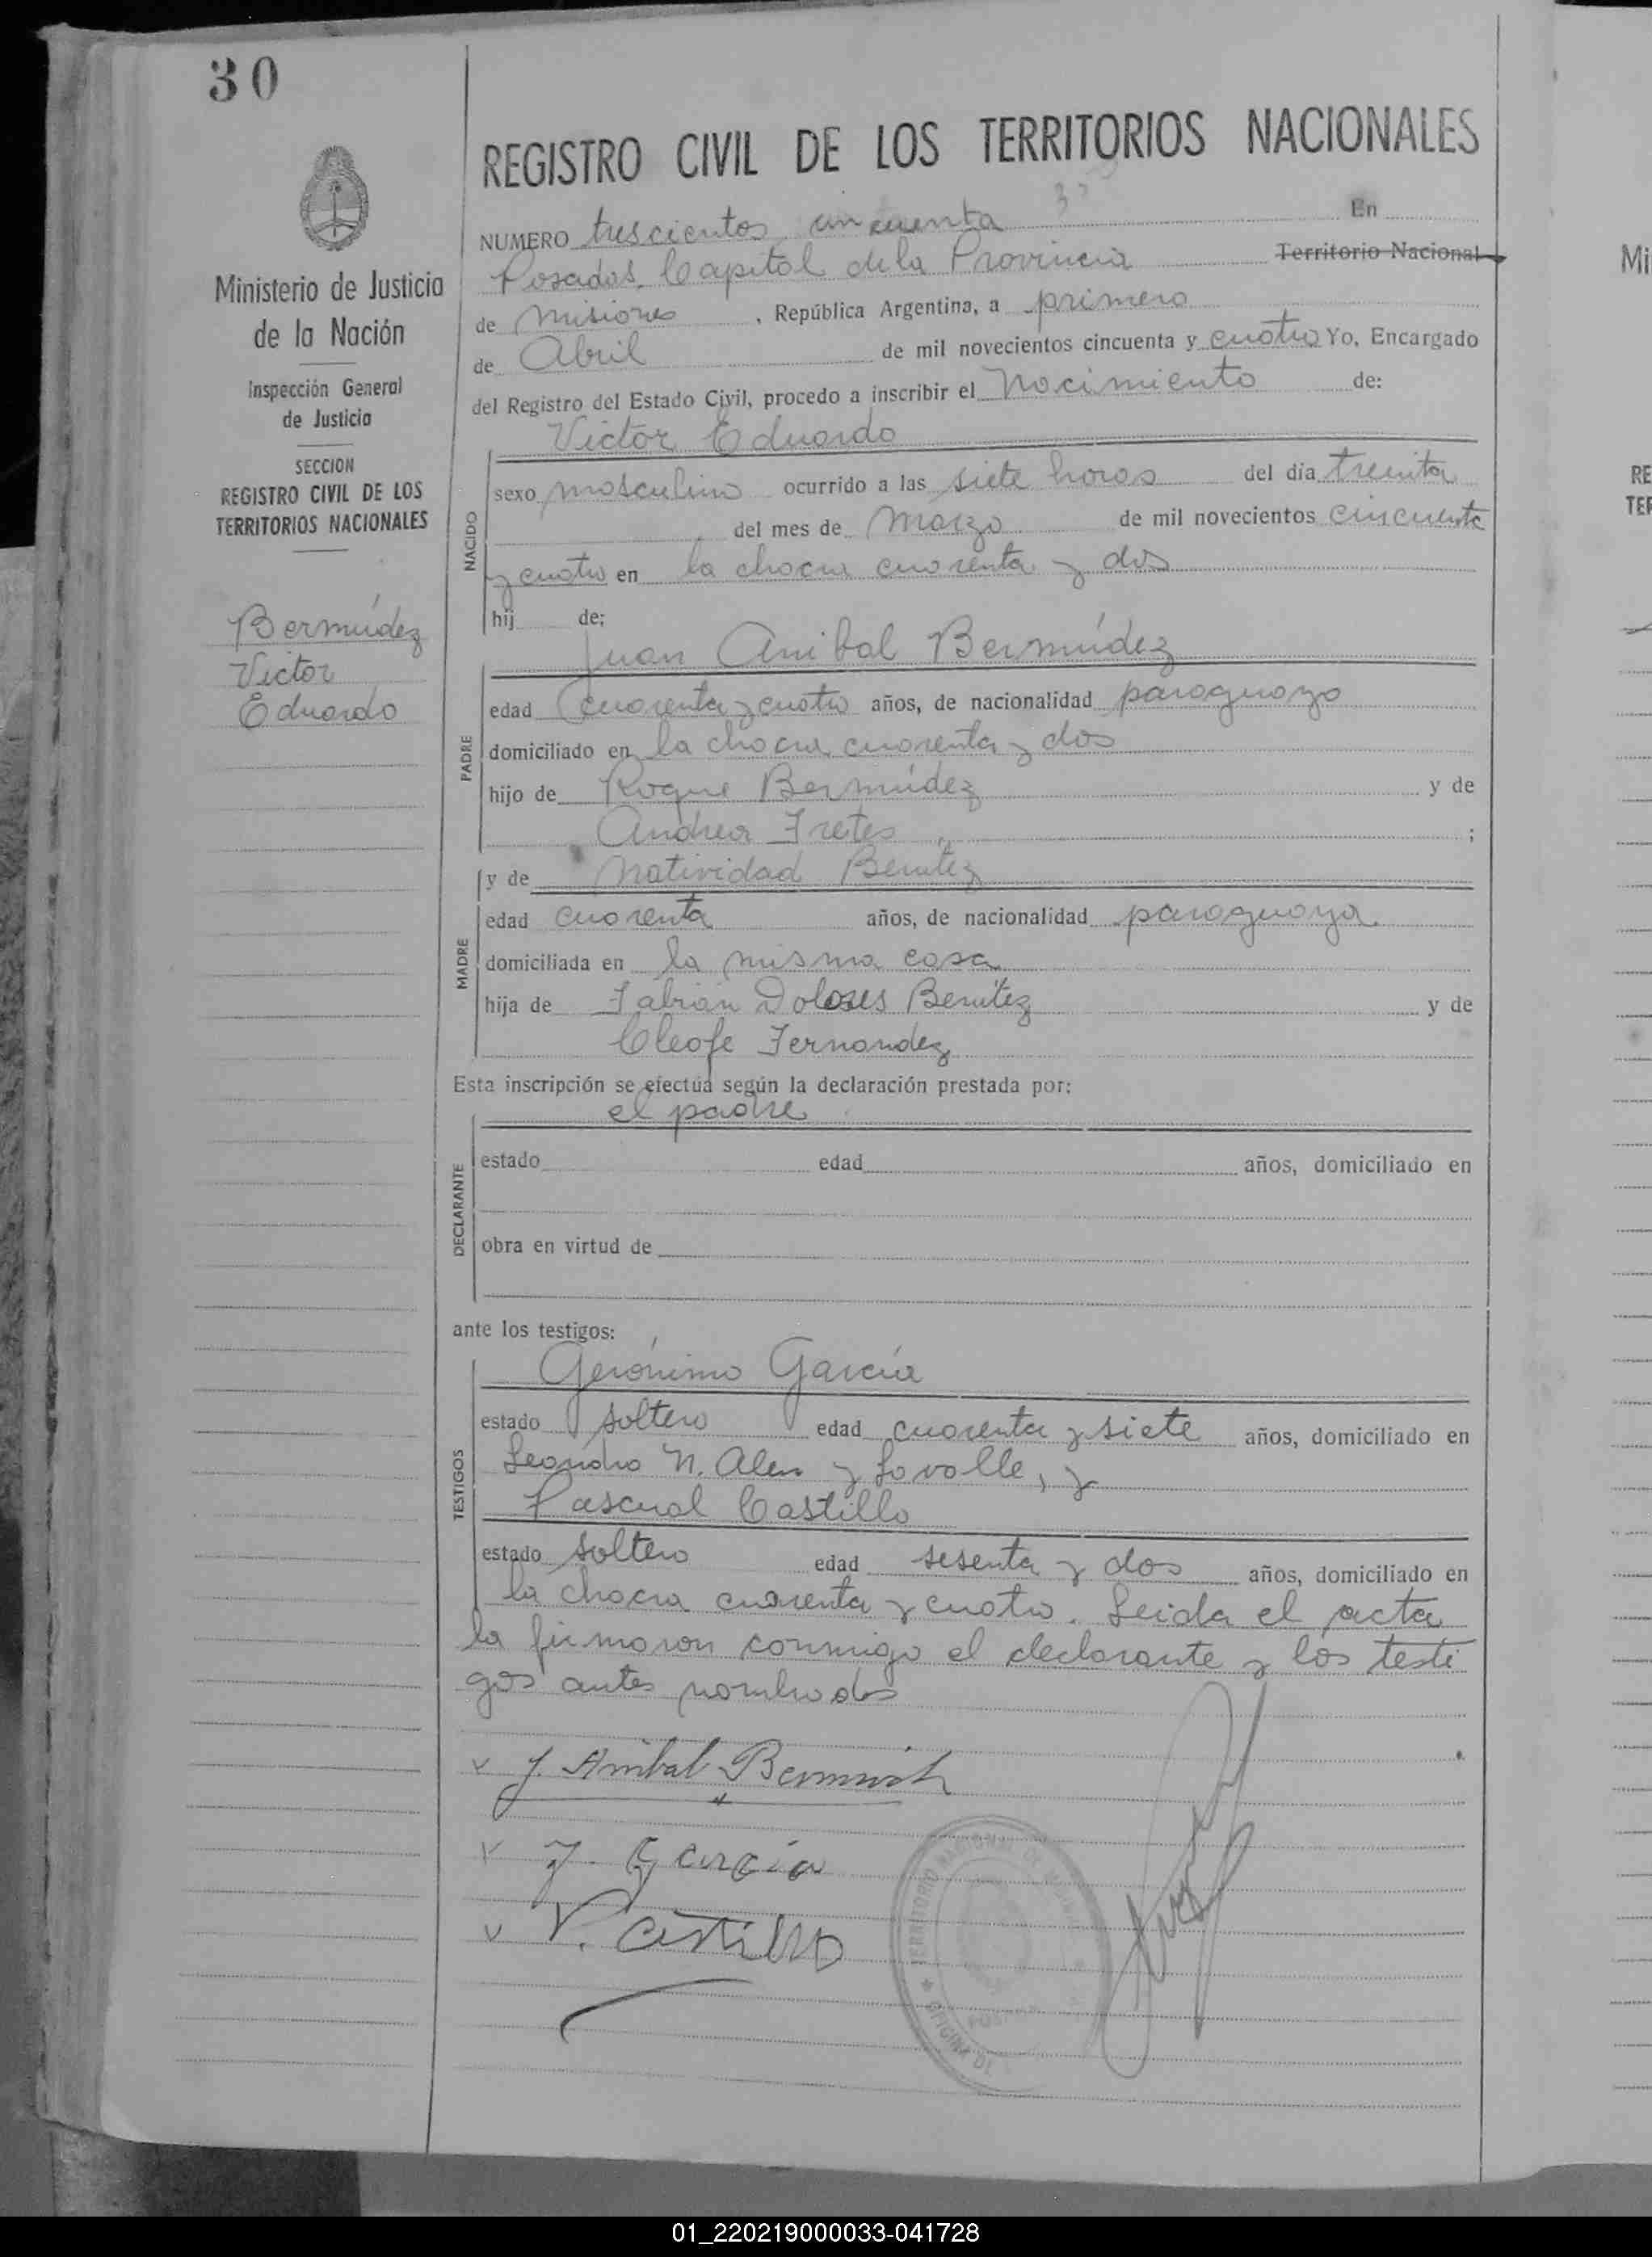 30
Ministerio de Justicia
de la Nación
Inspección General
de Justicia
SECCION
REGISTRO CIVIL DE LOS
TERRITORIOS NACIONALES
Bermúdez
Victor
Eduardo
REGISTRO CIVIL DE LOS TERRITORIOS NACIONALES
NUMERO trescientos cincuenta En
Posadas, Capital de la Provincia Territorio Nacional
de Misiones, República Argentina, a primero
de Abril de mil novecientos cincuenta y cuatro Yo, Encargado
del Registro del Estado Civil, procedo a inscribir el Nacimiento de:
Victor Eduardo
NACIDO
sexo masculino ocurrido a las siete horas del día treinta
del mes de Marzo de mil novecientos cincuenta
y cuatro en la chacra cuarenta y dos
hij de:
Juan Anibal Bermúdez
PADRE
edad cuarenta y cuatro años, de nacionalidad paraguayo
domiciliado en la chacra cuarenta y dos
hijo de Roque Bermúdez y de
Andrea Fretes ;
y de Natividad Benitez
MADRE
edad cuarenta años, de nacionalidad paraguaya
domiciliada en la misma casa
hija de Fabián Dolores Benítez y de
Cleofe Fernandez
Esta inscripción se efectúa según la declaración prestada por:
el padre
DECLARANTE
estado edad años, domiciliado en
obra en virtud de
ante los testigos:
Gerónimo García
TESTIGOS
estado soltero edad cuarenta y siete años, domiciliado en
Leandro N. Alem y Lavalle, y
Pascual Castillo
estado soltero edad sesenta y dos años, domiciliado en
la chacra cuarenta y cuatro. Leida el acta
la firmaron conmigo el declarante y los testi
gos antes nombrados
J. Anibal Bermúdez
J. Garcia
P. Castillo
TERRITORIO NACIONAL DE
OFICINA DE
01_220219000033-041728
Mi
RE
TER